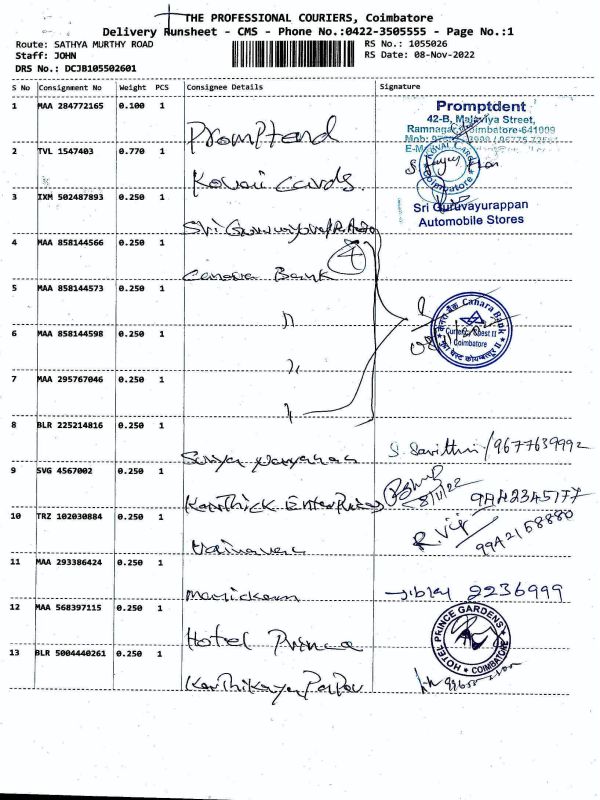 THE PROFESSIONAL COURIERS, Coimbatore
Delivery Runsheet - CMS - Phone No.:0422-3505555 - Page No.:1
Route: SATHYA MURTHY ROAD
Staff: JOHN
DRS No.: DCJB105502601
RS No.: 1055026
RS Date: 08-Nov-2022
S No Consignment No Weight PCS Consignee Details Signature
1 MAA 284772165 0.100 1 Promptend
Promptdent
42-B, Malaviya Street,
Ramnagar, Coimbatore-641009
2 TVL 1547403 0.770 1 Kovai Cards
KOVAI CARDS
Coimbatore
3 IXM 502487893 0.250 1 Sri
Sri Guruvayurappan
Automobile Stores
4 MAA 858144566 0.250 1 Canara Bank 4
5 MAA 858144573 0.250 1 "
6 MAA 858144598 0.250 1 "
केनरा बैंक Canara Bank
Currency Chest II
Coimbatore
7 MAA 295767046 0.250 1 "
8 BLR 225214816 0.250 1 Suriya S. Savithri / 9677639992
9 SVG 4567002 0.250 1 Karthick Enterprises 8/11/22
10 TRZ 102030884 0.250 1 R. Viji
11 MAA 293386424 0.250 1 Manickam 2236999
12 MAA 568397115 0.250 1 Hotel Prince
HOTEL PRINCE GARDENS
COIMBATORE
13 BLR 5004440261 0.250 1